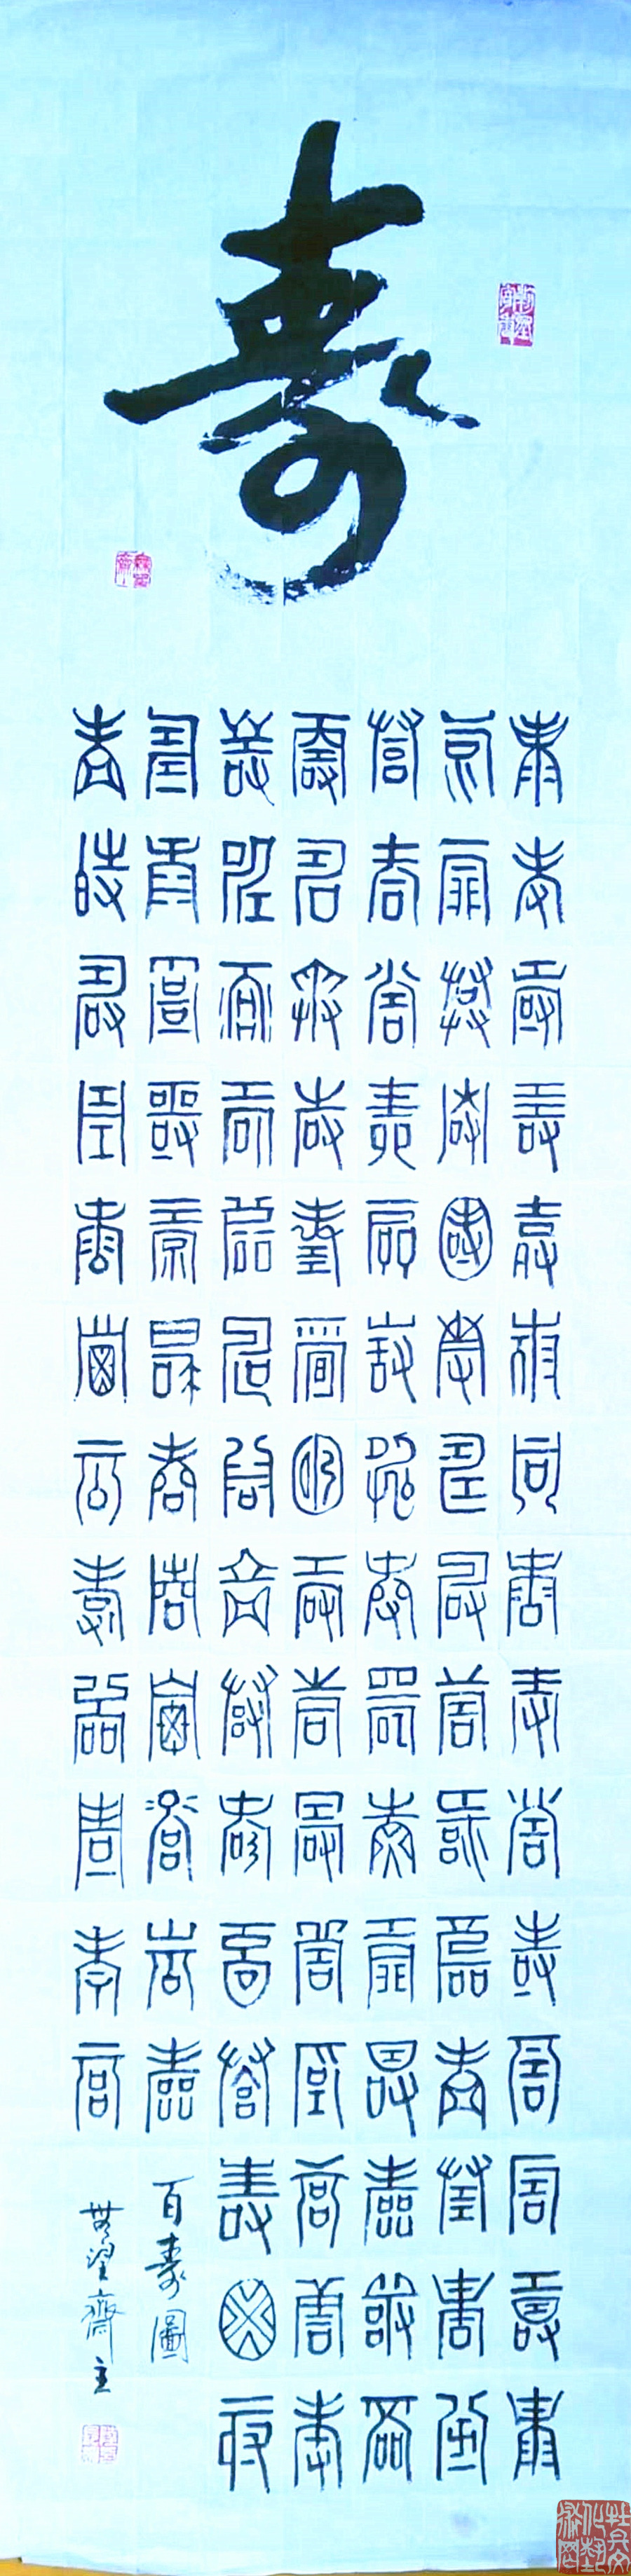 壽
壽壽壽壽壽壽壽壽壽壽壽壽壽壽壽
壽壽壽壽壽壽壽壽壽壽壽壽壽壽壽
壽壽壽壽壽壽壽壽壽壽壽壽壽壽壽
壽壽壽壽壽壽壽壽壽壽壽壽壽壽壽
壽壽壽壽壽壽壽壽壽壽壽壽壽壽壽
壽壽壽壽壽壽壽壽壽壽壽壽
百壽圖
壽壽壽壽壽壽壽壽壽壽壽壽
無望齋主